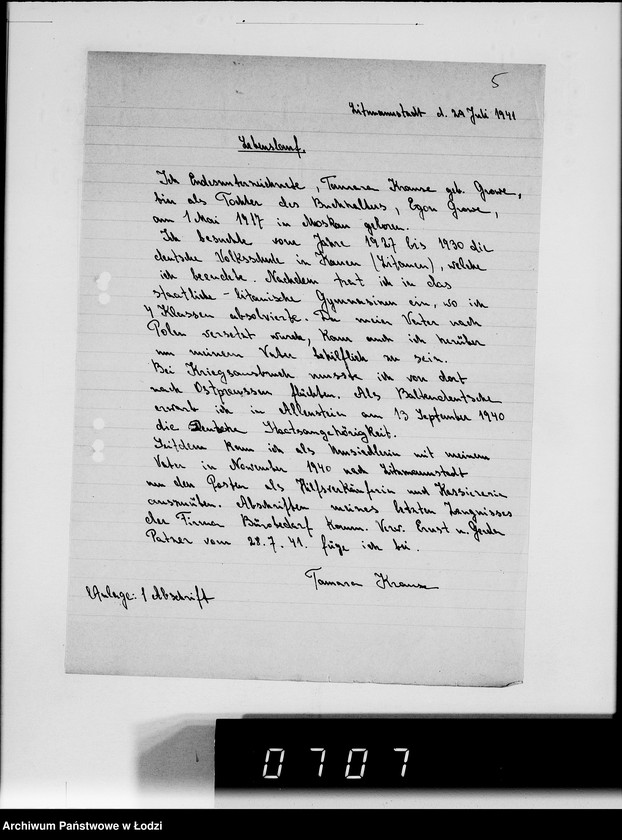 5
Litzmannstadt d. 29 Juli 1941
Lebenslauf.
Ich Endesunterzeichnete, Tamara Krause geb. Growe,
bin als Tochter des Buchhalters, Egon Growe,
am 1 Mai 1917 in Moskau geboren.
Ich besuchte vom Jahre 1927 bis 1930 die
deutsche Volksschule in Kauen (Litauen), welche
ich beendete. Nachdem trat ich in das
staatliche-litauische Gymnasium ein, wo ich
4 Klassen absolvierte. Da mein Vater nach
Polen versetzt wurde, kam auch ich herüber
um meinem Vater behilflich zu sein.
Bei Kriegsausbruch musste ich von dort
nach Ostpreussen flüchten. Als Baltendeutsche
erwarb ich in Allenstein am 13 September 1940
die Deutsche Staatsangehörigkeit.
Seitdem kam ich als Umsiedlerin mit meinem
Vater in November 1940 nach Litzmannstadt
um den Posten als Hilfsverkäuferin und Kassiererin
auszuüben. Abschriften meines letzten Zeugnisses
der Firma Bürobedarf Komm. Verw. Ernst u. Gerda
Patzer vom 28.7.41. füge ich bei.
Tamara Krause
Anlage: 1 Abschrift
0707
Archiwum Państwowe w Łodzi